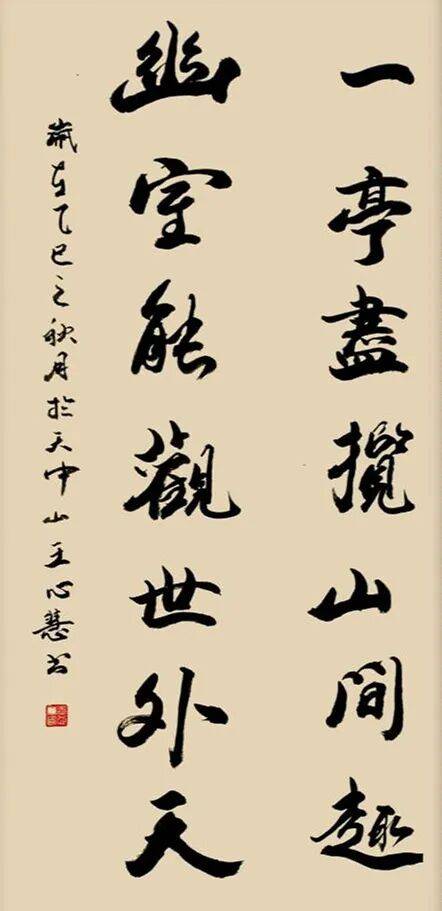 一亭盡攬山間趣
幽室能觀世外天
歲在乙巳之秋月於天中山王心慧书